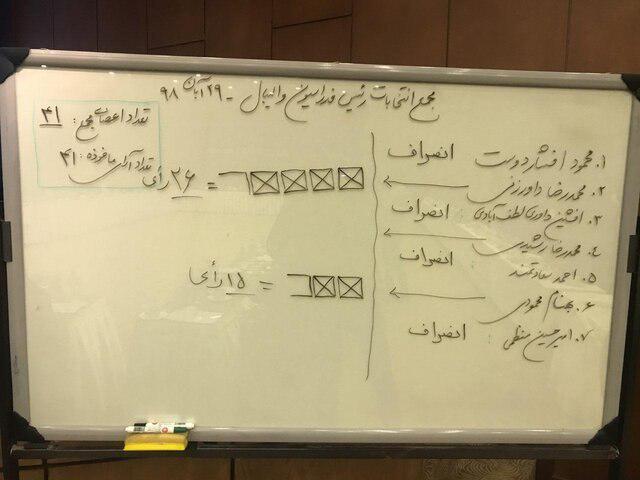 مجمع انتخابات رئیس فدراسیون والیبال - ۲۹ آبان ۹۸
تعداد اعضای مجمع: ۴۱
تعداد آرای مأخوذه: ۴۱
۱. محمود افشاردوست انصراف
۲. محمدرضا داورزنی = ۲۶ رأی
۳. افشین داوری لطف آبادی انصراف
۴. محمدرضا رشیدی
۵. احمد سعادتمند انصراف
۶. بهنام محمودی = ۱۵ رأی
۷. امیرحسین منظمی انصراف